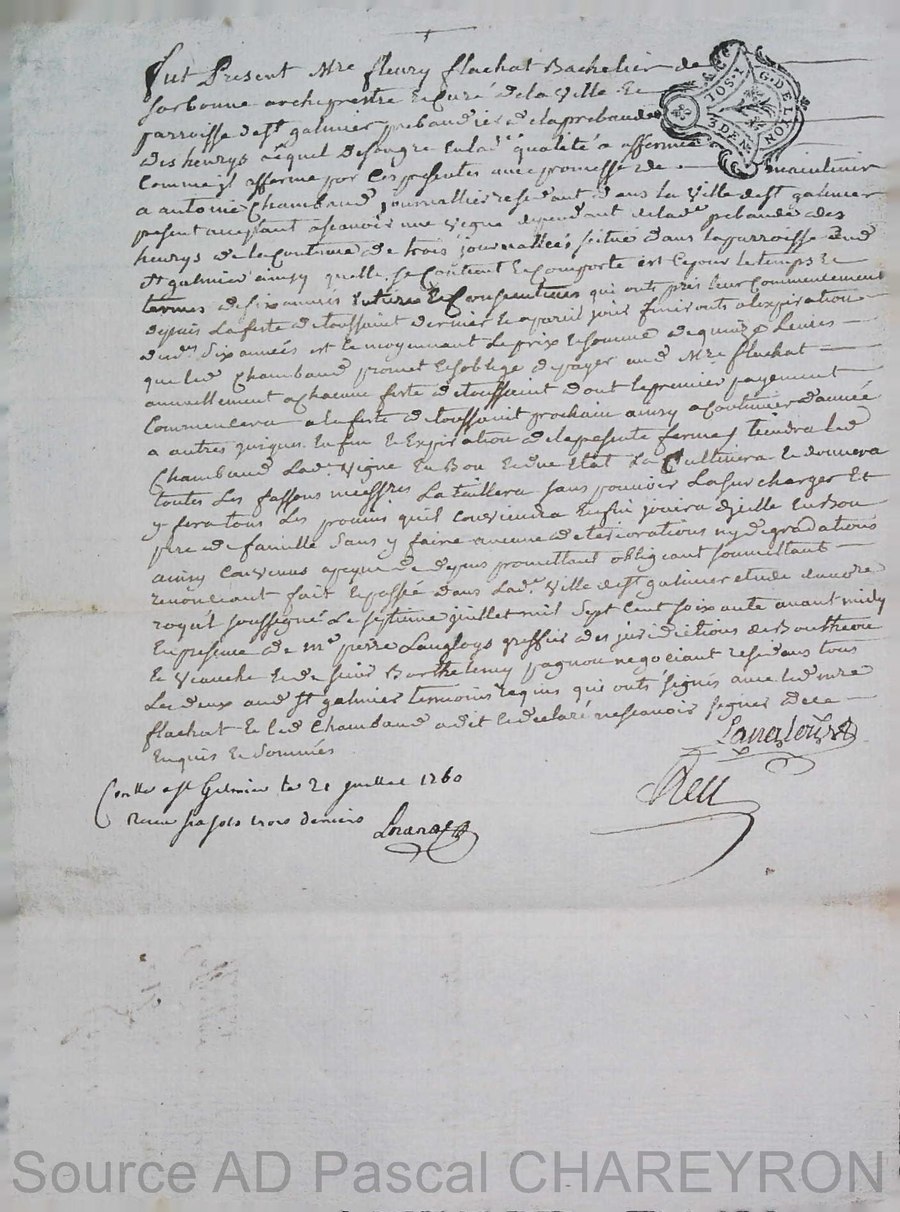 Fut Present Mre fleury flachat Bachelier de
sorbonne archiprestre et Curé de la Ville et
parroisse de st galmier prebandier de la prebande
des henrys lequel de son gré en lad. qualité a affermé
Comme il afferme par Ces presentes avec promesse de maintenir
a antoine Chambaud journallier residant dans la Ville de st galmier
present acceptant ascavoir une vigne dependant de lad. prebande des
henrys de la Contenue de trois journallées située dans la parroisse dud
st galmier ainsy quelle se Contient et Comporte est ce pour le temps et
termes de six années Entieres et Consecutives qui onts pris leur Commencement
depuis La feste de toussaint dernier et a pareil jour finironts a lexpiration
desd. Six années est ce moyennant Le prix et somme de quinze Livres
que led Chambaud promet et soblige de payer aud Mre flachat
annuellement a chacune feste de toussaint dont le premier payement
Commencera a la feste de toussaint prochain ainsy a Continuer dannée
a autres jusques En fin et Expiration de la presente ferme, tiendra led
Chambaud Lad. vigne En Bon et due Etat La Cultivera et donnera
toutes Les fassons La taillera sans pouvoir La surcharger Et
y fera tous Les provins quil Conviendra Enfin jouira dicelle En bon
pere de famille sans y faire aucune deteriorations ny degradations
ainsy Convenus a peyne de depens promettant obligeant soumettant
renonceant fait et passé dans Lad. Ville de st galmier etude du notre
royal soussigné Le septieme juillet mil Sept Cent soixante avant midy
En presence de mre pierre Langloys greffier des juridictions de Boutheon
et veauche et de sieur Barthelemy pagnon negociant residans tous
Les deux aud st galmier temoins requis qui onts signés avec led mre
flachat et led Chambaud a dit et declaré ne scavoir signer de ce
Enquis et sommés
Langlois
Contlé a st Galmier le 21 juillet 1760
Receu six sols trois deniers
G. DE LYON
3 DEN.
Source AD Pascal CHAREYRON